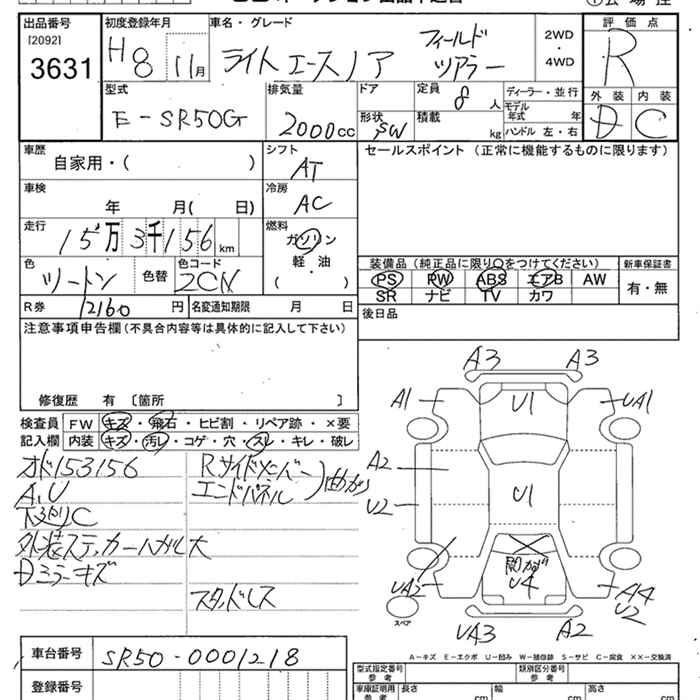 出品番号
[2092]
3631
初度登録年月
H8 11月
車名・グレード
ライトエースノア フィールドツアラー
2WD
・
4WD
評価点
R
型式
E-SR50G
排気量
2000cc
ドア
定員
8人
形状
SW
積載
kg
ディーラー・並行
モデル年式 年
ハンドル 左・右
外装 内装
D C
車歴
自家用・( )
シフト
AT
セールスポイント (正常に機能するものに限ります)
車検
年 月( 日)
冷房
AC
走行
15万3千156km
燃料
ガソリン
軽・油
( )
色
ツートン
色替
色コード
2CN
装備品 (純正品に限り○をつけてください)
PS PW ABS エアB AW
SR ナビ TV カワ
新車保証書
有・無
R券
12160円
名変通知期限 月 日
後日品
注意事項申告欄(不具合内容等は具体的に記入して下さい)
修復歴 有 〔箇所 〕
検査員記入欄
FW キズ・飛石・ヒビ割・リペア跡・×要
内装 キズ・汚レ・コゲ・穴・スレ・キレ・破レ
オド153156
A、U
下廻りC
外装ステッカーハガレ大
Dミラーキズ
Rサイドメンバー
エンドパネル
曲がり
スタッドレス
A3 A3
A1 U1 UA1
A2
U2 U1
UA2 U4 A14
U2
スペア
UA3 A2
A-キズ E-エクボ U-凹み W-補修跡 S-サビ C-腐食 XX-交換済
車台番号
SR50-0001218
登録番号
型式指定番号
参考
類別区分番号
参考
車庫証明用
参考
長さ cm
幅 cm
高さ cm